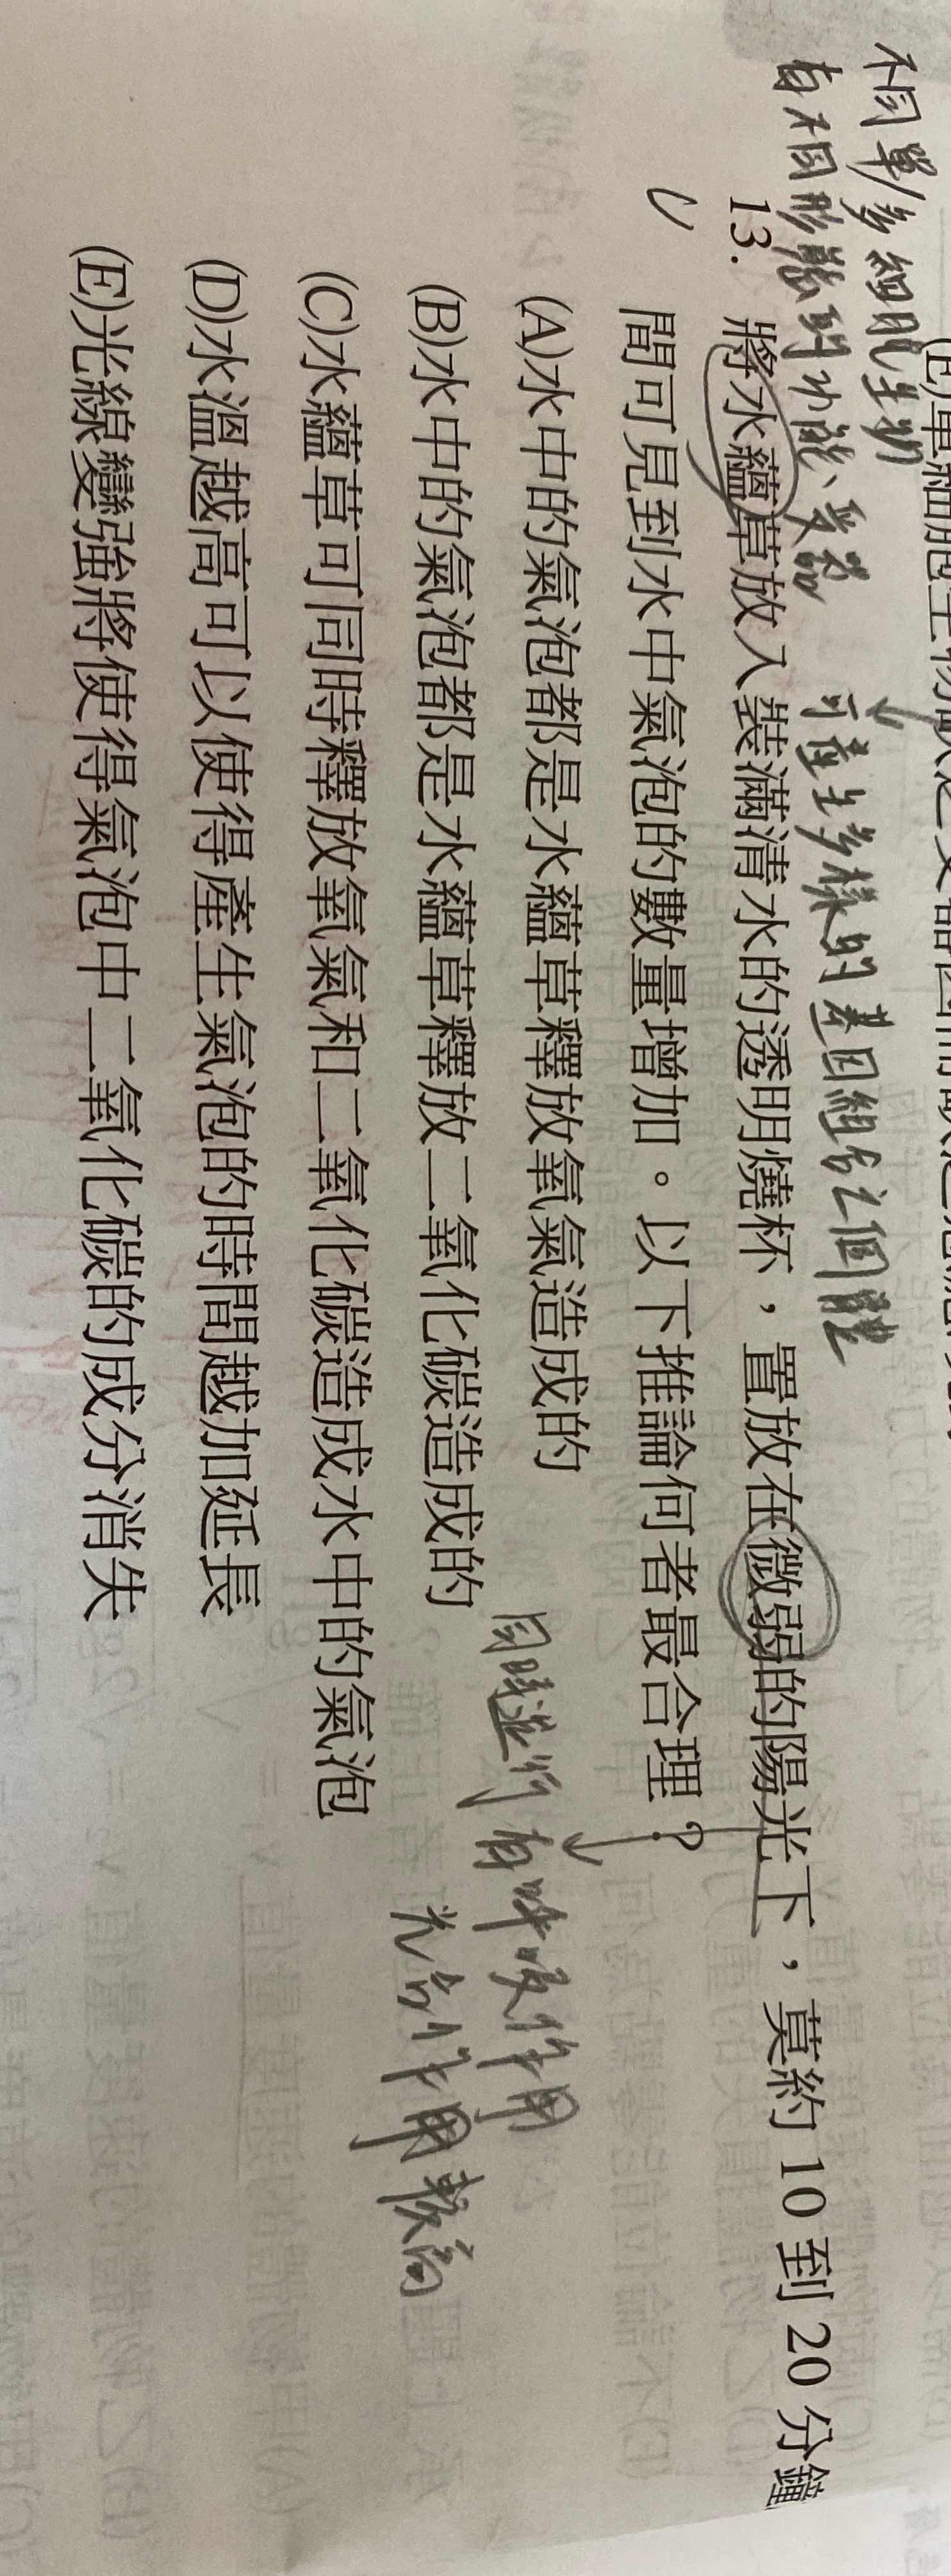 相同單/多細胞生物
有不同形態到功能、受器
可產生多樣的基因組合之個體
13. 將水蘊草放入裝滿清水的透明燒杯，置放在微弱的陽光下，莫約 10 到 20 分鐘
間可見到水中氣泡的數量增加。以下推論何者最合理？
(A)水中的氣泡都是水蘊草釋放氧氣造成的
(B)水中的氣泡都是水蘊草釋放二氧化碳造成的
同時進行 有呼吸作用
光合作用
(C)水蘊草可同時釋放氧氣和二氧化碳造成水中的氣泡
(D)水溫越高可以使得產生氣泡的時間越加延長
(E)光線變強將使得氣泡中二氧化碳的成分消失